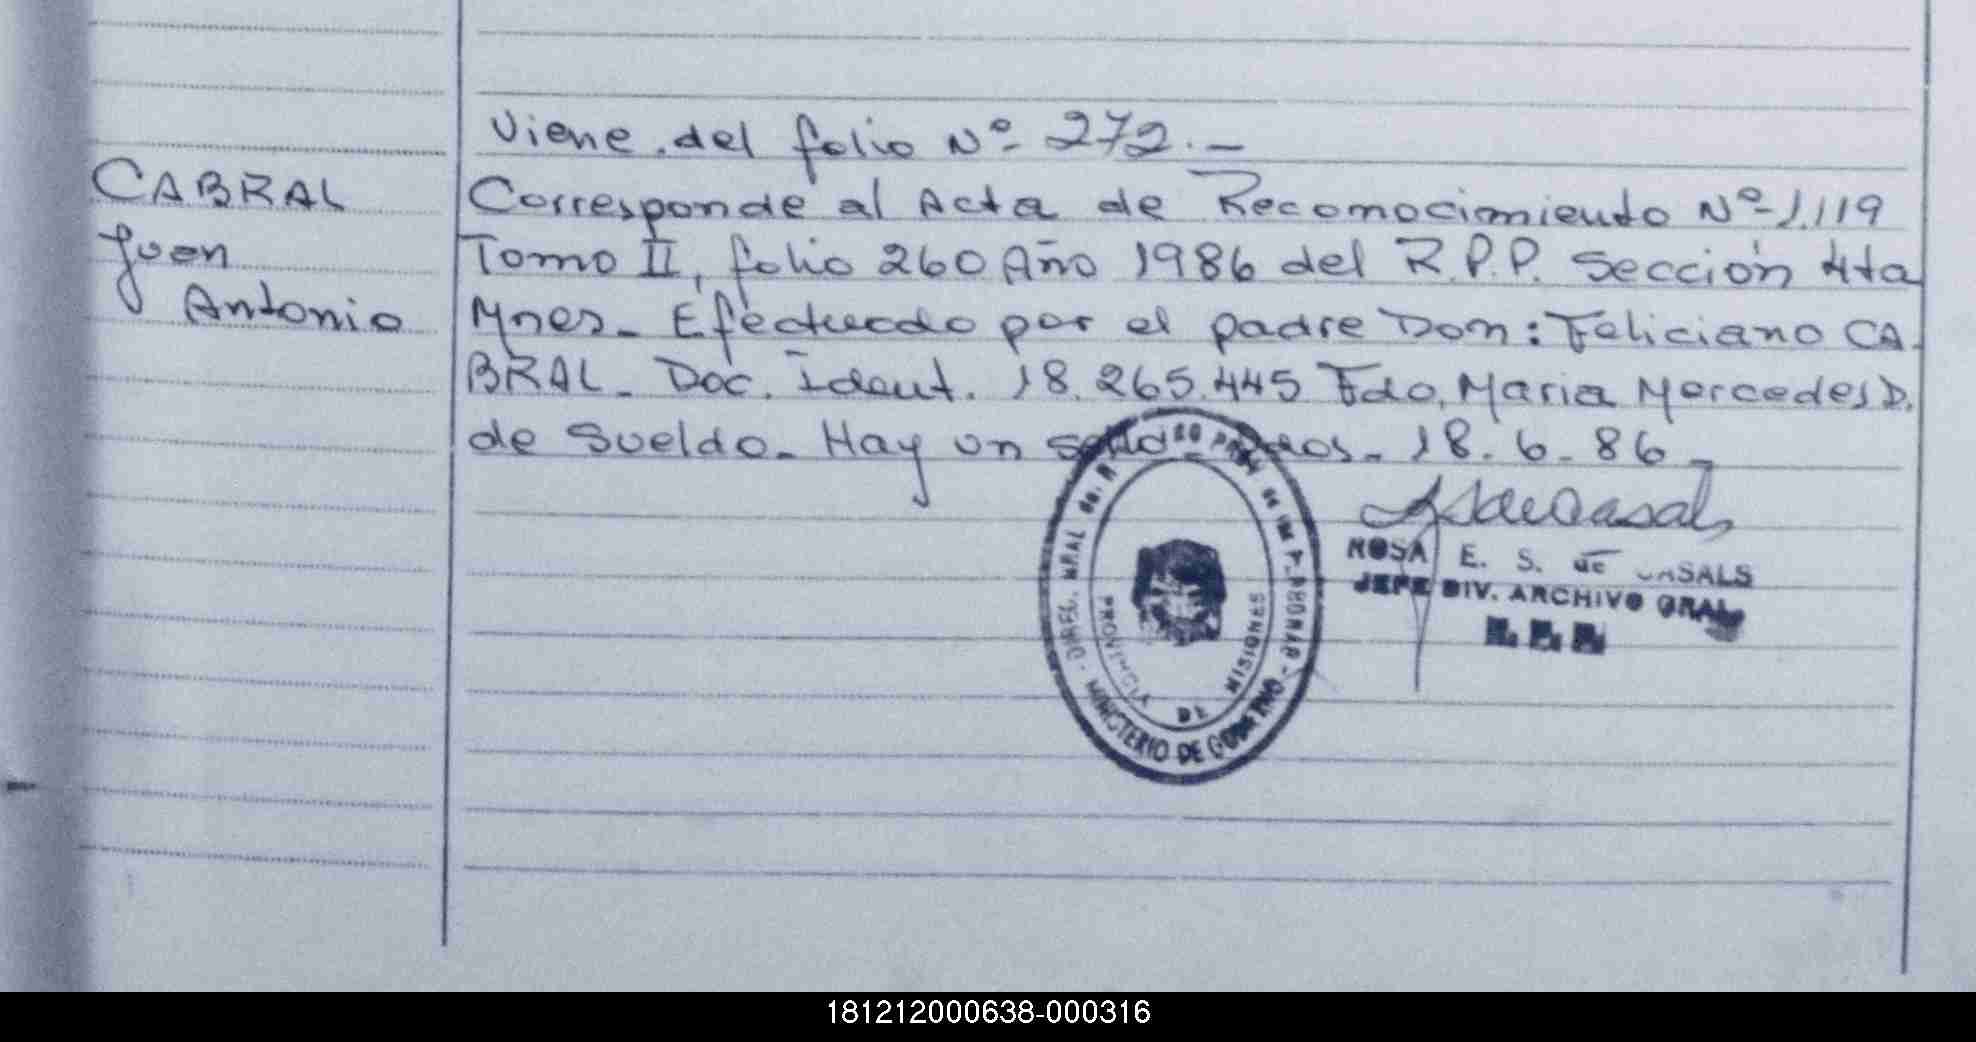 Viene del folio Nº 272.-
CABRAL
Juan
Antonio
Corresponde al Acta de Reconocimiento Nº 1.119
Tomo II, folio 260 Año 1986 del R.P.P. Sección 4ta
Mnes. Efectuado por el padre Don: Feliciano CA
BRAL. Doc. Ident. 18.265.445 Fdo. Maria Mercedes D.
de Sueldo. Hay un sello. Pdos. 18.6.86.
ROSA E. S. de CASALS
JEFE DIV. ARCHIVO GRAL
PROVINCIA DE MISIONES
MINISTERIO DE GOBIERNO
181212000638-000316